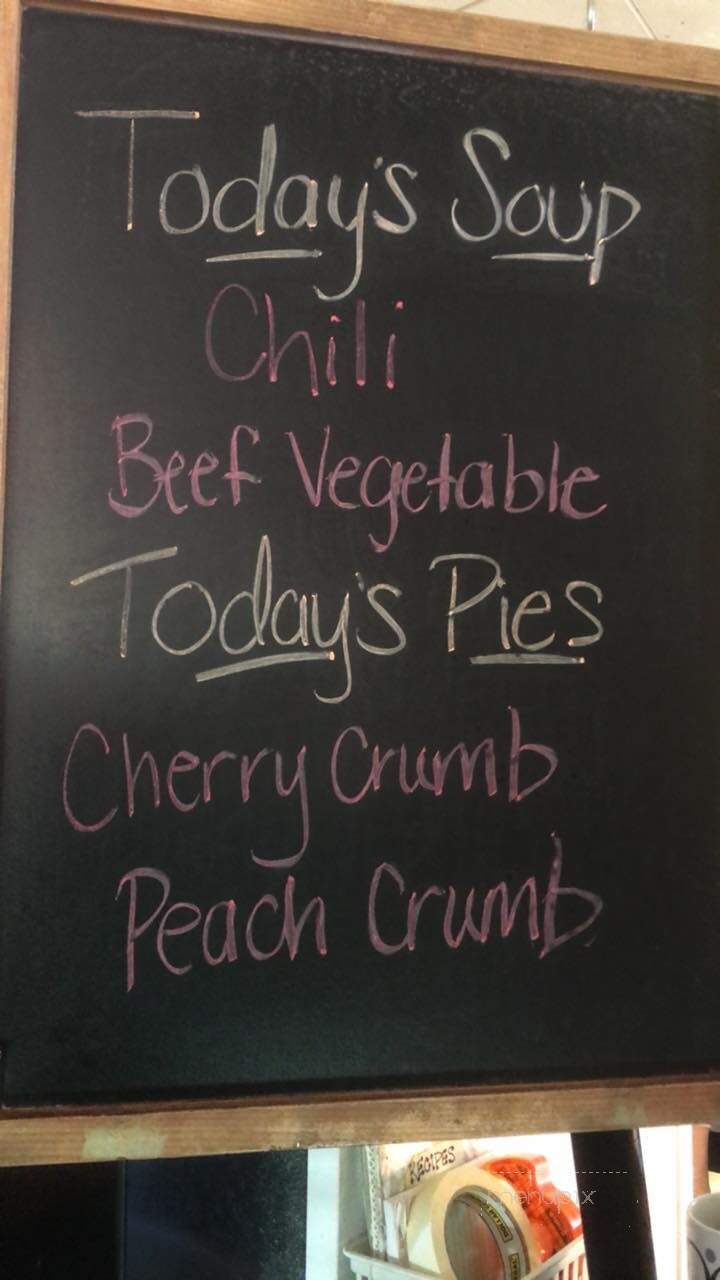 Today's Soup
Chili
Beef Vegetable
Today's Pies
Cherry Crumb
Peach Crumb
RECIPES
menupix